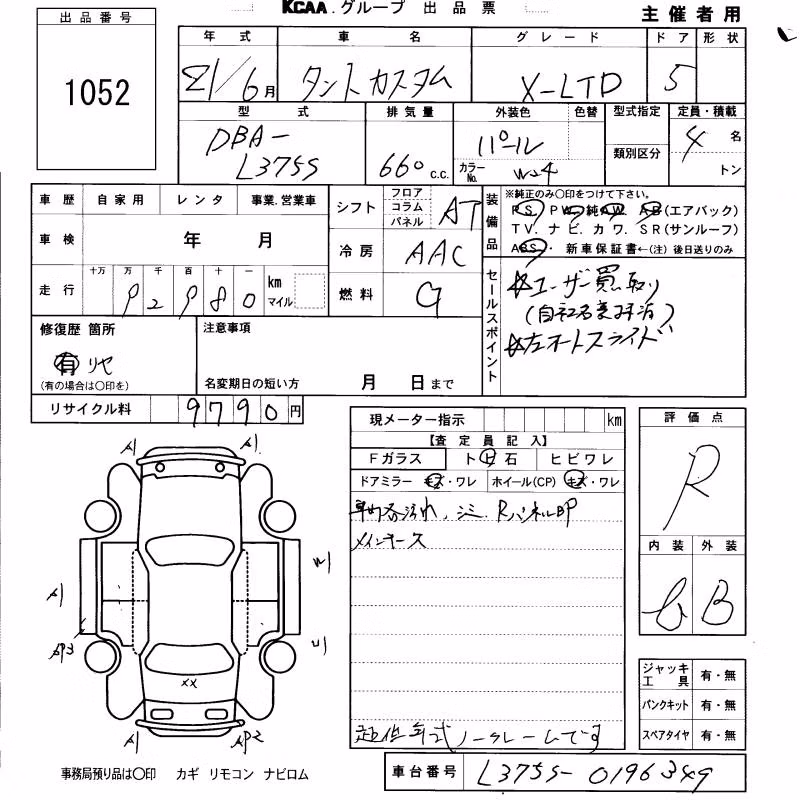 KCAA.グループ 出品票
主催者用
出品番号
1052
年式 車名 グレード ドア 形状
21/6月 タントカスタム X-LTD 5
型式 排気量 外装色 色替 型式指定 定員・積載
DBA-L375S 660 c.c. パール カラーNo. W24 類別区分 4名 トン
車歴 自家用 レンタ 事業.営業車
シフト フロア コラム パネル AT
装備品 ※純正のみ〇印をつけて下さい。
PS. PW. 純AW. AB(エアバック)
TV. ナビ. カワ. SR(サンルーフ)
ABS・ 新車保証書←(注) 後日送りのみ
車検 年 月
冷房 AAC
走行 十万 万 千 百 十 一
92980 km マイル
燃料 G
セールスポイント
☆ユーザー買取り
(自社名変可済)
☆左オートスライド
修復歴 箇所
有 リヤ
(有の場合は〇印を)
注意事項
名変期日の短い方 月 日まで
リサイクル料 9790円
現メーター指示 km
【査定員記入】
Fガラス トビ石 ヒビワレ
ドアミラー キズ・ワレ ホイール(CP) キズ・ワレ
車内汚れ、シミ Rパネル凹P
メインキース
超低年式ノークレームです
評価点
R
内装 外装
b B
A1 A1
A1 W1
AP3 U1
XX
A1 AP2
ジャッキ工具 有・無
パンクキット 有・無
スペアタイヤ 有・無
事務局預り品は〇印 カギ リモコン ナビロム
車台番号 L375S-0196349